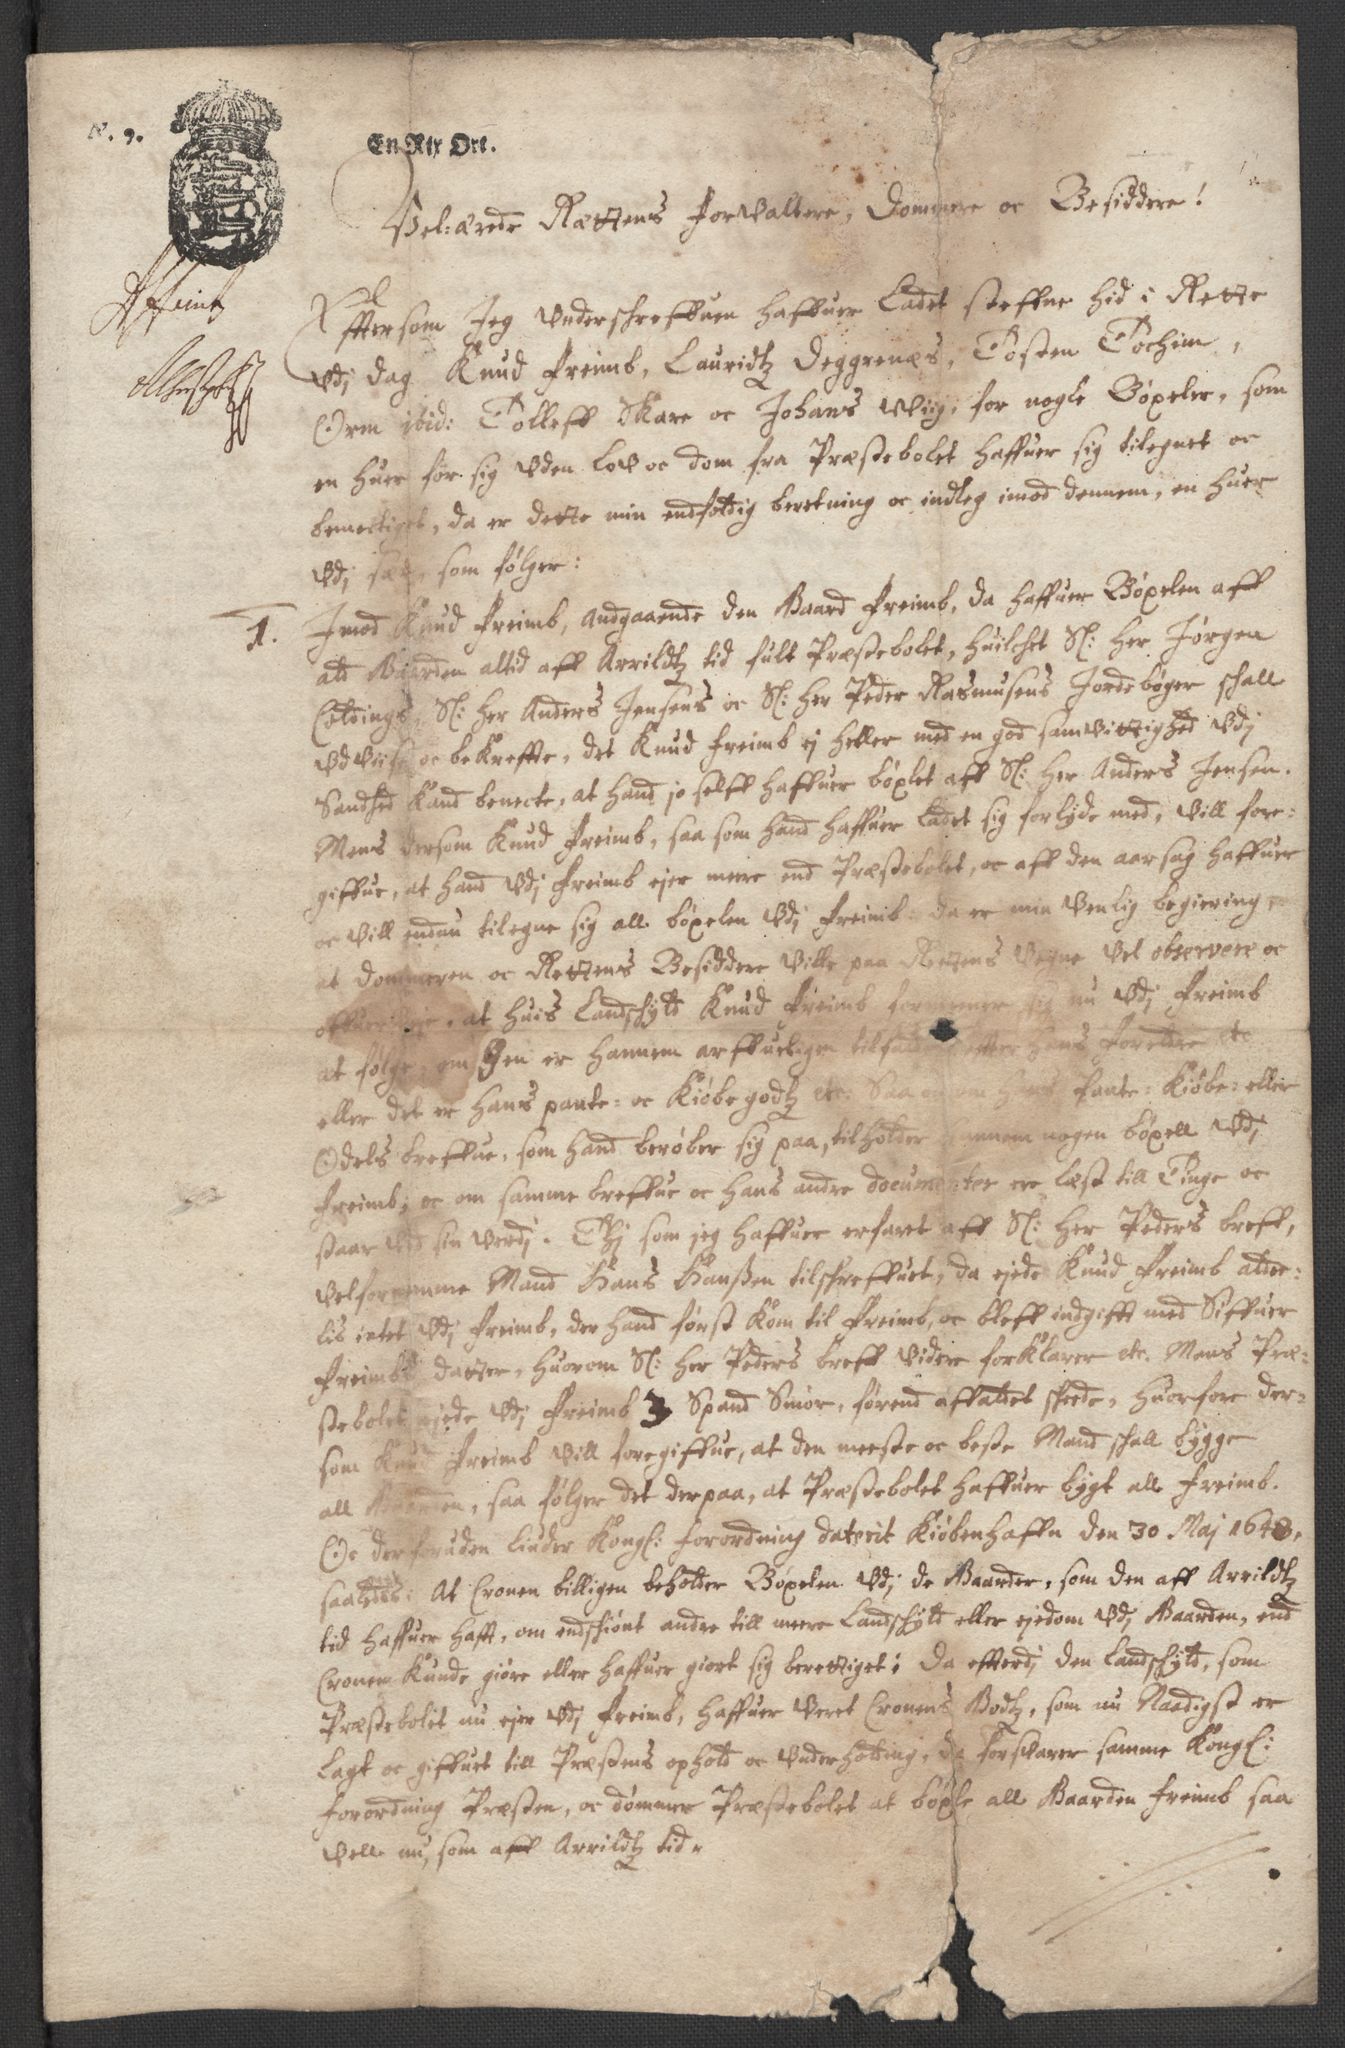 N. 9.
En Rix Ort.
Vel:ærede Rættens Forwaltere, Dommere oc Besiddere!
Efftersom Jeg Underschreffuen haffuer Ladet steffne hid i Rette
Vdj dag Knud Freimb, Lauridtz Deggrenæs, Tosten Tochim,
Orm ibid: Tolleff Skare oc Johans Wiig, for nogle Bøxeler, som
en huer for sig Vden low oc dom fra Præstebolet haffuer sig tilegnet oc
bemectiget, da er dette min endfoldig beretning oc indleg imod dennem, en huer
Vdj sær, som følger:
1. Imod Knud Freimb, Andgaaende den Gaard Freimb, da haffuer Bøxelen aff
ald Gaarden altid aff Arrildtz tid fult Præstebolet, huilchet Sl: Her Jørgen
Coldings, Sl: Her Anders Jensens oc Sl: Her Peder Rasmusens Jordebøger schall
Vdwiise oc bekreffte, det Knud Freimb ej heller med en god samwittighed Vdj
Sandhed kand benecte, at hand jo selff haffuer bøxlet aff Sl: Her Anders Jensen.
Mens dersom Knud Freimb, saa som hand haffuer Ladet sig forlyde med, Vill fore:
giffue, at hand Vdj Freimb ejer mere end Præstebolet, oc aff den aarsag haffuer
oc Vill endnu tilegne sig all bøxelen Vdj Freimb: da er min Venlig begiering,
at dommeren oc Rettens Besiddere Ville paa Rettens Vegne Vel observere oc
offuerveje, at huis Landschyld Knud Freimb formener sig nu Vdj Freimb
at følge, om den er hannem arffueligen tilfalden effter hans Foreldre etc
eller det er hans pante= oc Kiøbegodtz etc. Saa oc om hans Pante= Kiøbe= eller
Odels breffue, som hand berøber sig paa, tilholder hannem nogen bøxell Vdj
Freimb, oc om samme breffue oc hans andre documenter ere læst till Tinge oc
staar Ved sin Verdj. Thj som jeg haffuer erfaret aff Sl: Her Peders breff,
Velfornemme Mand Hans Hanßen tilschreffuet, da ejede Knud Freimb alde:
lis intet Vdj Freimb, der hand først kom til Freimb, oc bleff indgifft med Siffuer
Freimbs datter, huorom Sl: Her Peders breff Videre forklarer etc. Mens Præ=
stebolet ejede Vdj Freimb 3 Spand Smør, førend affaldet skede, huorfore der=
som Knud Freimb Vill foregiffue, at den meeste oc beste Mand schall bygge
all Gaarden, saa følger det derpaa, at Præstebolet haffuer bygt all Freimb.
Oc derforuden Liuder Kongl: Forordning daterit Kiøbenhaffn den 30 Maj 1648,
saaledes: At Cronen billigen beholder Bøxelen Vdj de Gaarder, som den aff Arrildtz
tid haffuer hafft, om endschiønt andre till meere Landschyld eller ejedom Vdj Gaarden, end
Cronen kunde giøre eller haffuer giort sig berettiget: Da efftersj den Landschyld, som
Præstebolet nu ejer Vdj Freimb, haffuer Veret Cronens Godtz, som nu Naadigst er
Lagt oc giffuet till Præstens ophold oc Vnderholding, da forsVarer samme Kongl:
Forordning Præsten, oc dømmer Præstebolet at bøxle all Gaarden Freimb saa
Vell nu, som aff Arrildtz tid.